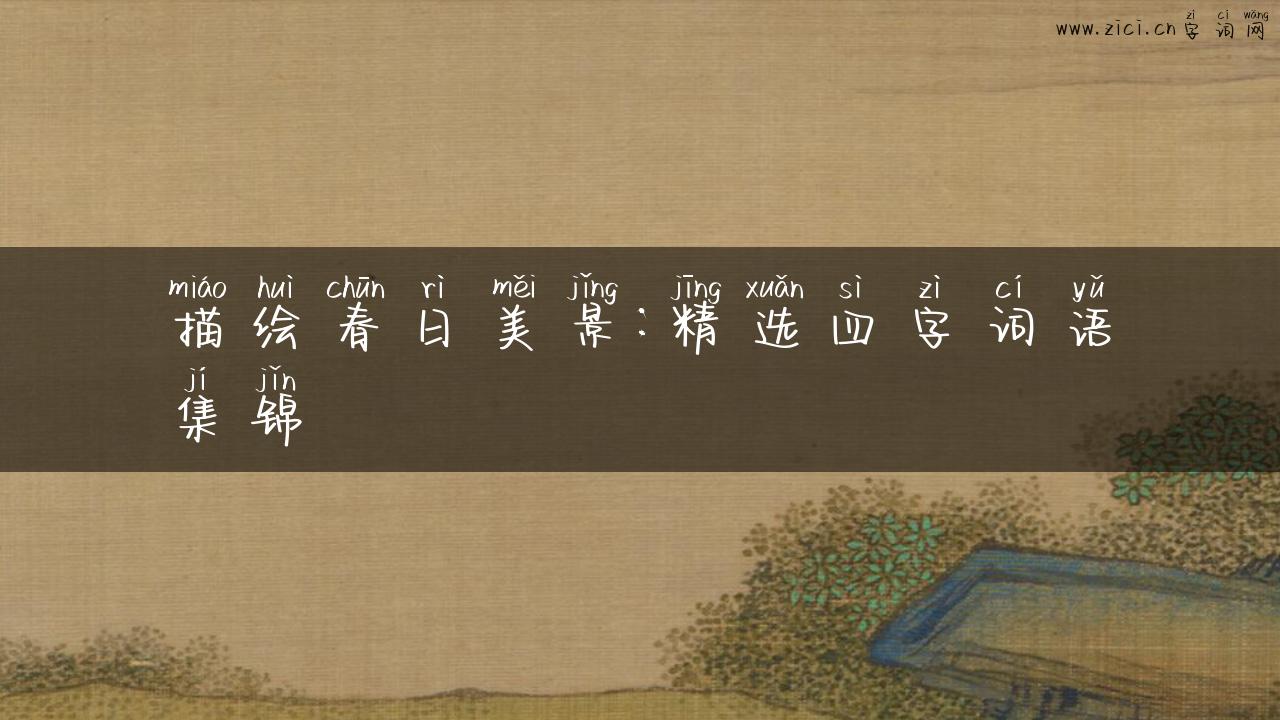 zì cí wǎng
www.zici.cn字词网
miáo huì chūn rì měi jǐng jīng xuǎn sì zì cí yǔ
描绘春日美景:精选四字词语
jí jǐn
集锦